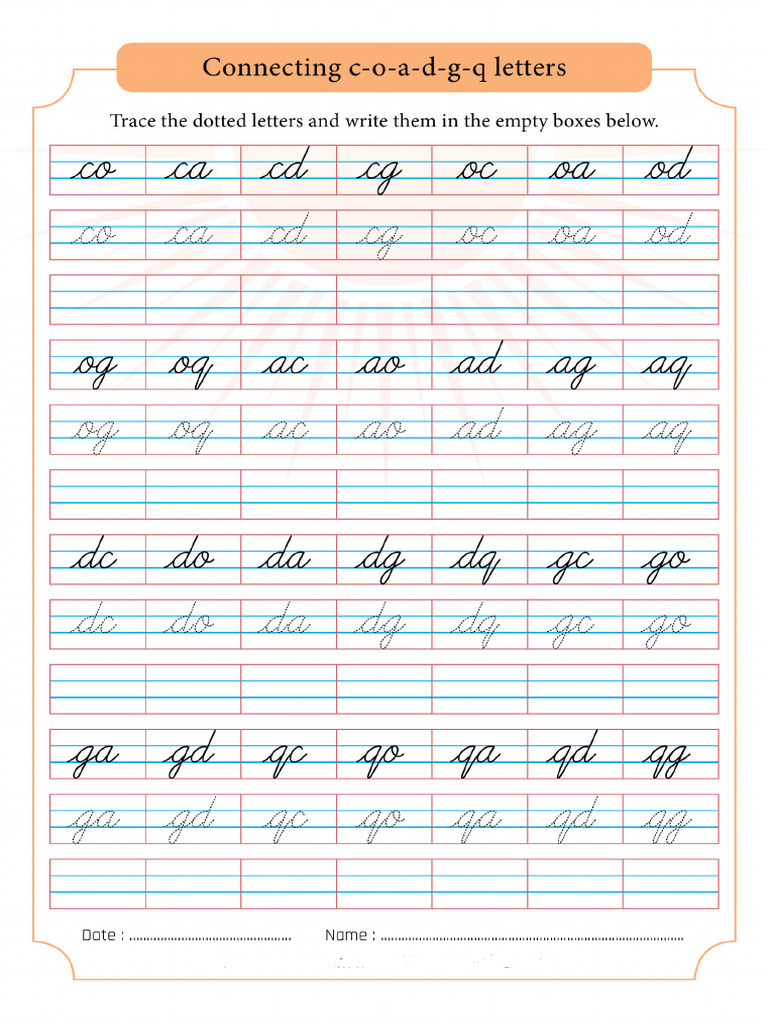 Connecting c-o-a-d-g-q letters
Trace the dotted letters and write them in the empty boxes below.
co ca cd cg oc oa od
co ca cd cg oc oa od
og oq ac ao ad ag aq
og oq ac ao ad ag aq
dc do da dg dq gc go
dc do da dg dq gc go
ga gd qc qo qa qd qg
ga gd qc qo qa qd qg
Date : ........................................ Name : ...........................................................................